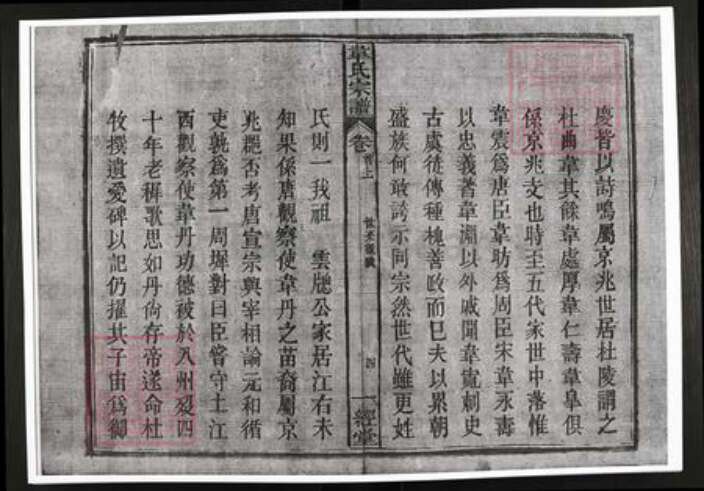 慶皆以詩鳴屬京兆世居杜陵謂之
杜曲韋其餘韋處厚韋仁壽韋皐俱
係京兆支也時至五代家世中落惟
韋震爲唐臣韋昉爲周臣宋韋永壽
以忠義著韋淵以外戚聞韋寬刺史
古虞徒傳種槐善政而已夫以累朝
盛族何敢誇示同宗然世代雖更姓
韋氏宗譜
卷首上
四
一經堂
氏則一我祖 雲牕公家居江右未
知果係唐觀察使韋丹之苗裔屬京
兆郡否考唐宣宗與宰相論元和循
吏孰爲第一周墀對曰臣嘗守土江
西觀察使韋丹功德被於八州歿四
十年老稚歌思如丹尙存帝遂命杜
牧撰遺愛碑以記仍擢其子宙爲御